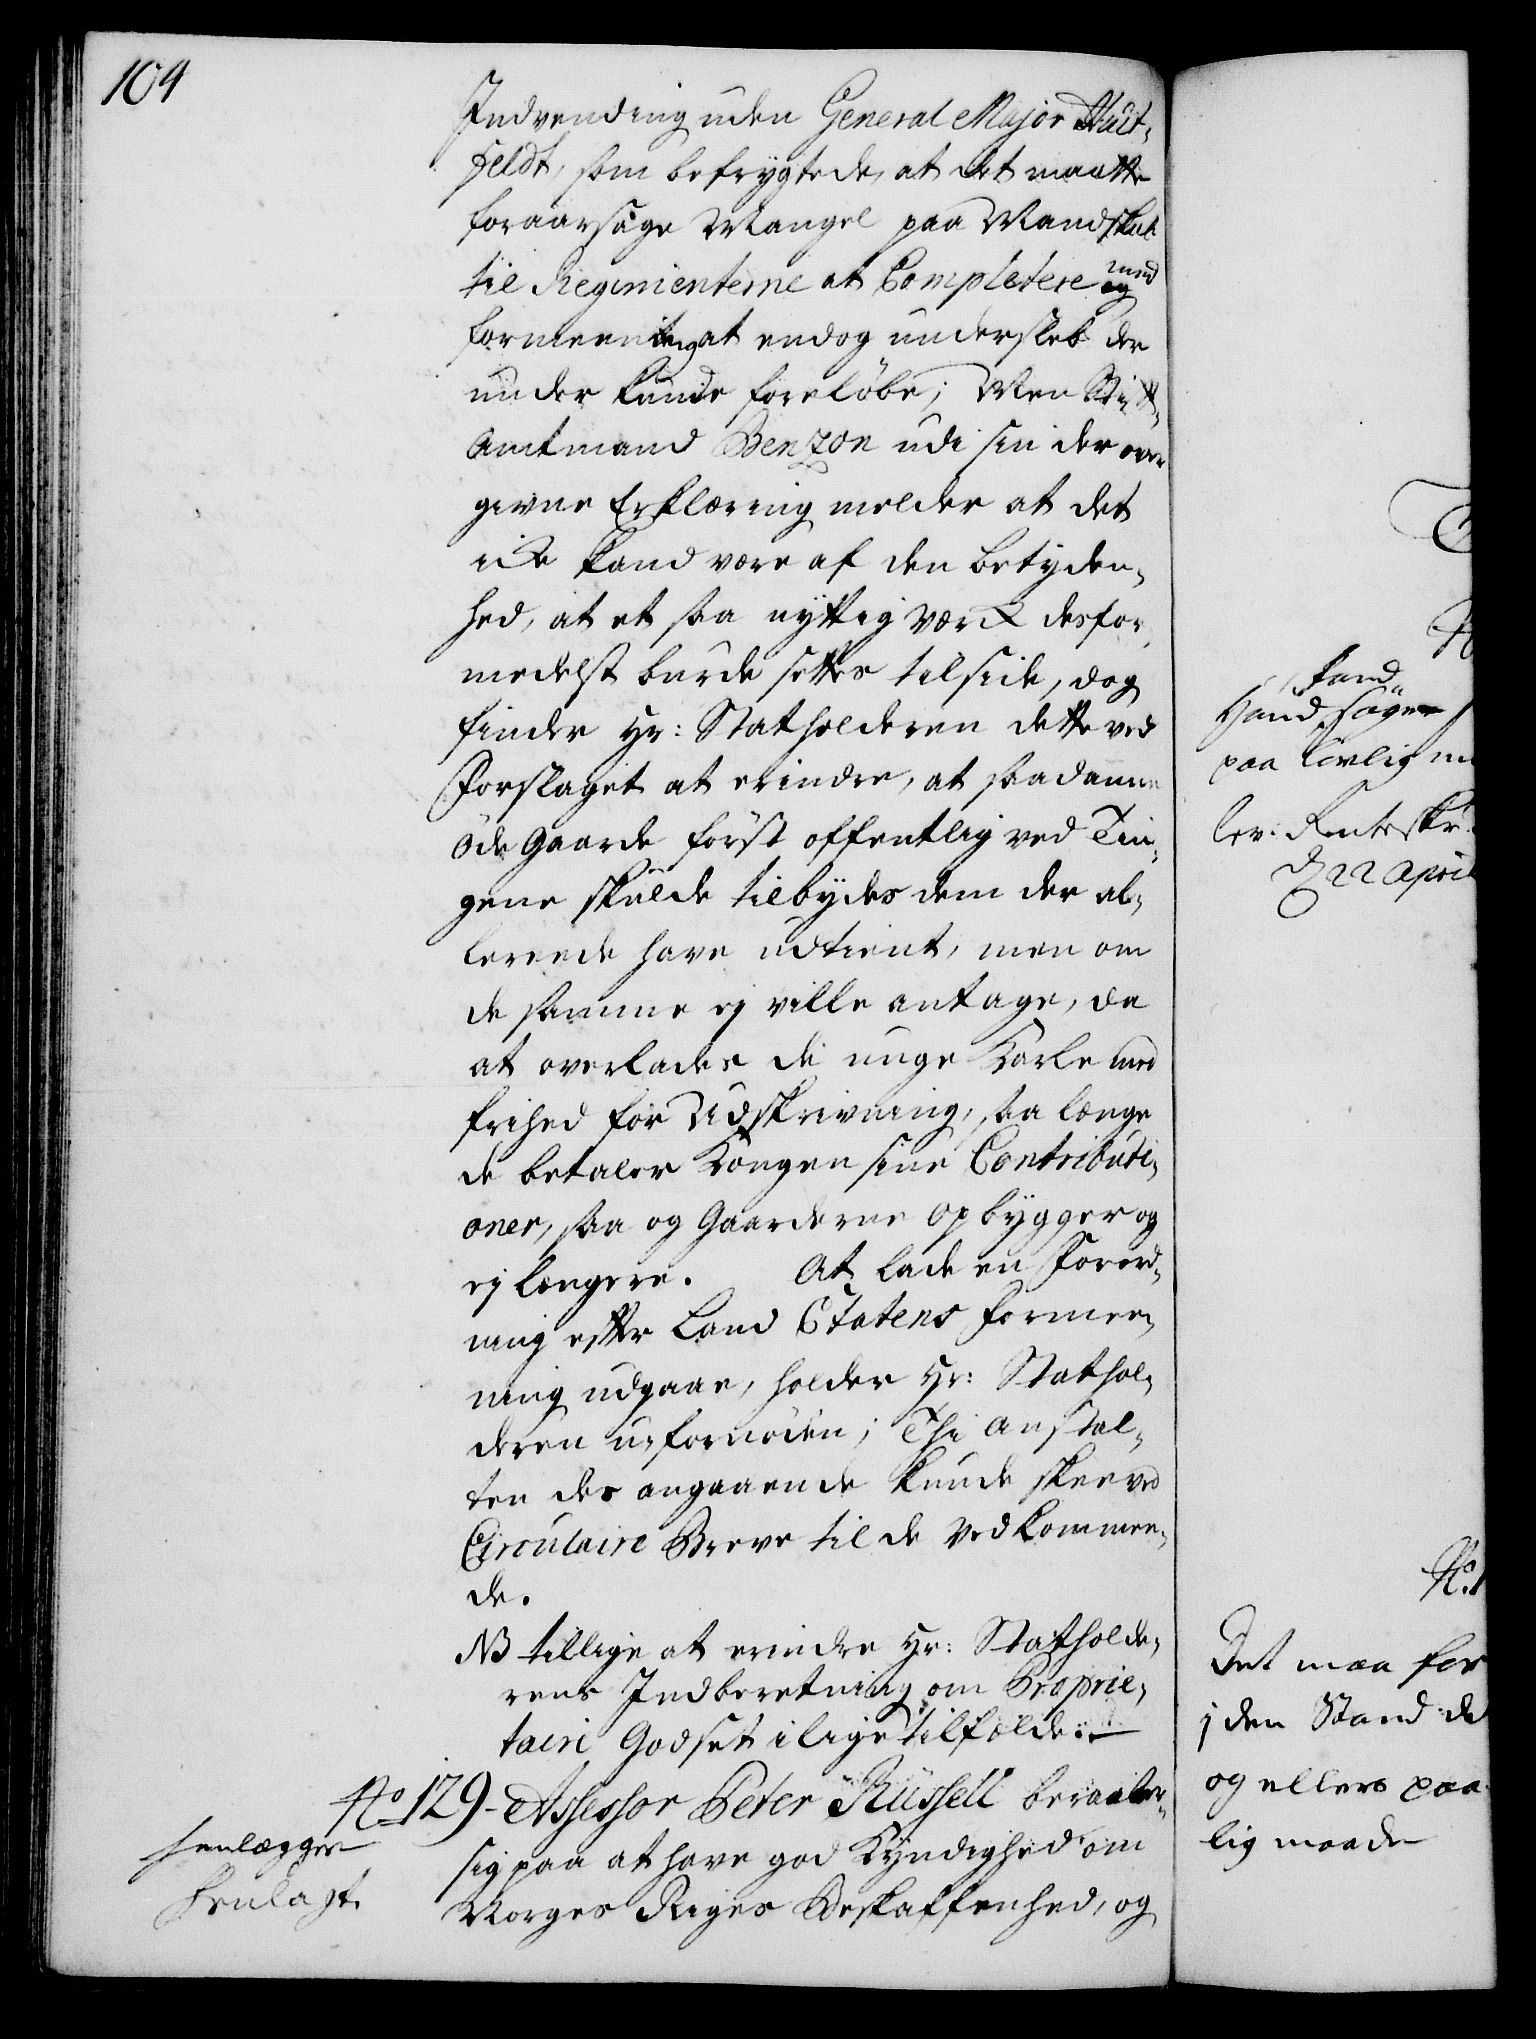 104
Indvending uden General Major Huit-
feldt, som befrygtede, at det maatte
foraarsage Mangel paa Mandskab
til Regimenterne at Completere med
formeening at endog underslæb der
under kunde foreløbe; Men Stift-
Amtmand Benzon udi sin der over
givne Erklæring melder at det
icke kand være af den betyden-
hed, at et saa nyttig værck desfor
medelst burde settes til side, dog
finder Hr: Statholderen dette ved
Forslaget at erindre, at saadanne
øde Gaarde først offentlig ved Tin-
gene skulde tilbydes dem der al-
lereede have udtient, men om
de samme ej ville antage, da
at overlades de unge Karle med
frihed for Udskrivning, saa længe
de betaler Kongen sine Contributi-
oner, saa og Gaarderne opbygger og
ej længere. At lade en Forord-
ning efter Land Etatens formee-
ning udgaae, holder Hr: Stathol-
deren ufornøden; Thi Anstal-
ten des angaaende kunde skee ved
Circulaire Breve til de Vedkommen-
de.
NB tillige at erindre Hr: Statholde-
rens Indberetning om Proprie-
tairi Godset i lige tilfælde.
No 129 - Assessor Peter Rüssell beraaber
sig paa at have god Kyndighed om
Norges Riges Beskaffenhed, og
henlægges
Henlagt.
kand
Hand søger
paa lovlig
lev: Rentesk
d 22 April
No.
Det maa for
i den Stand de
og ellers paa
lig maade